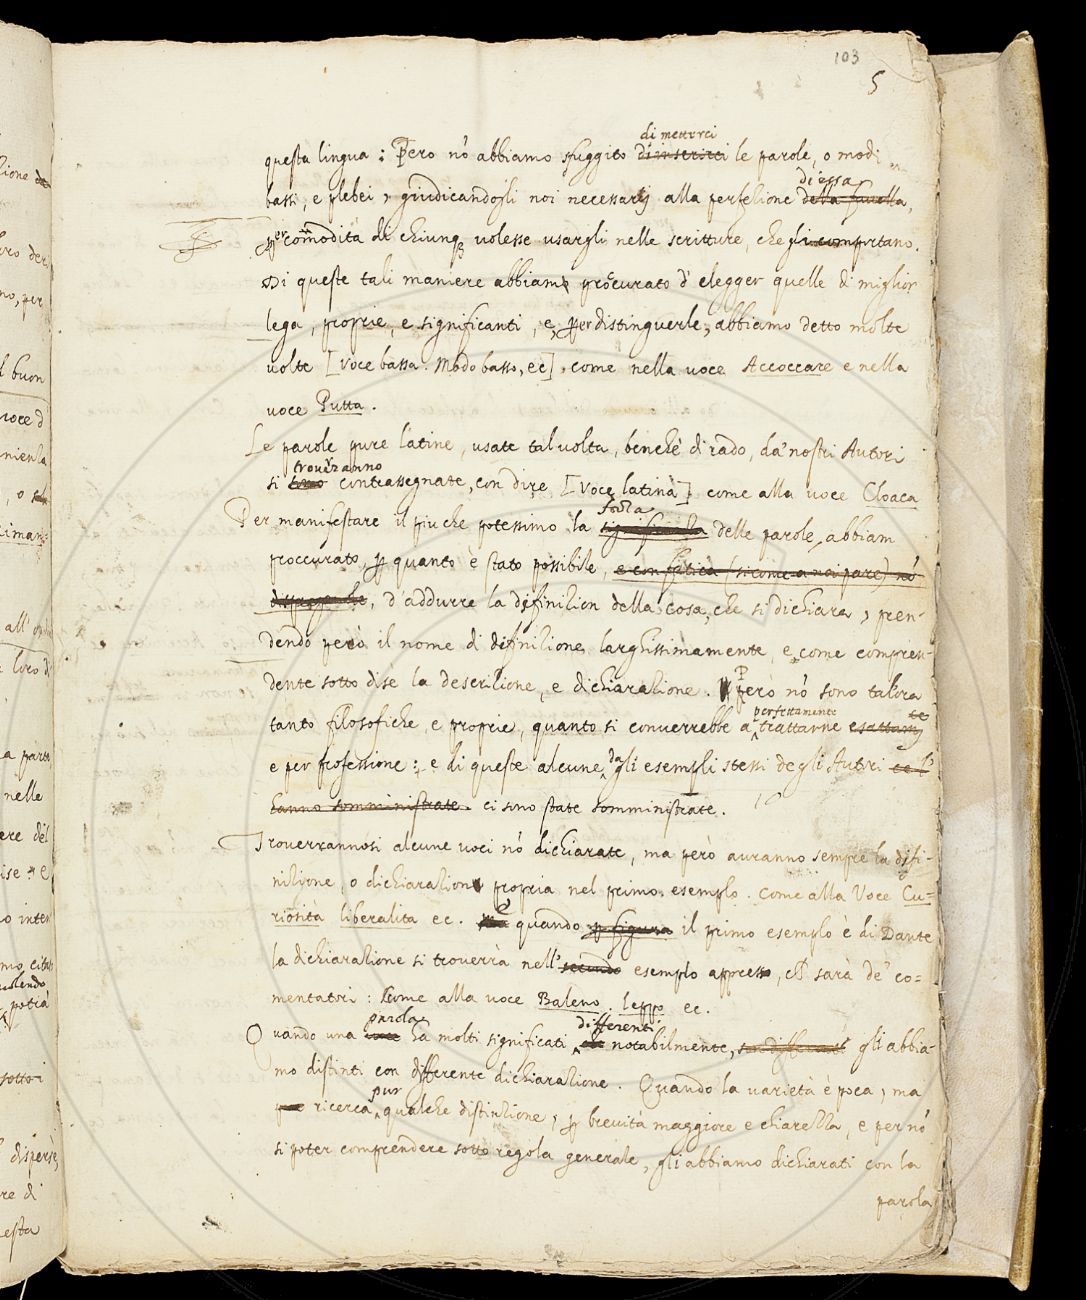 103
5
di metterci
questa lingua: Però nō abbiamo sfuggito d'inserirci le parole, o modi
di essa
bassi, e plebei, giudicandogli noi necessarij alla perfezione della favella,
per comodità di chiunq̨ volesse usargli nelle scritture, che gli comportano.
Di queste tali maniere abbiamo procurato d'elegger quelle di miglior
lega, proprie, e significanti, e, per distinguerle, abbiamo detto molte
volte [voce bassa. Modo basso, ec], come nella voce Accoccare e nella
voce Putta.
Le parole pure latine, usate talvolta, benchè di rado, da' nostri Autori
troverranno
si sono contrassegnate, con dire [Voce latina] come alla voce Cloaca
forza
Per manifestare il piu che potessimo la significanza delle parole, abbiam
proccurato, ꝑ quanto è stato possibile, e con fatica (si come a noi pare) nō
, d'addurre la difinizion della cosa, che si dichiara, pren-
dendo però il nome di difinizione larghissimamente, e come compren-
dente sotto di se la descrizione, e dichiarazione. Però nō sono talora
perfettamente te
tanto filosofiche, e proprie, quanto si converrebbe a trattarne esattam
e per professione: e di queste alcune dagli esempli stessi degli Autori ce l'
hanno somministrate. ci sono state somministrate.
Troverrannosi alcune voci nō dichiarate, ma però avranno sempre la difi-
nizione, o dichiarazione propria nel primo esemplo. come alla Voce Cu-
riosità liberalità ec. E quando ꝑ figura il primo esemplo è di Dante
la dichiarazione si troverrà nell' secondo esemplo appresso, ch sarà de' co-
mentatori: Come alla voce Baleno. leppo ec.
parola differenti
Quando una voce ha molti significati notabilmente, son differenti gli abbia-
mo distinti con differente dichiarazione. Quando la varietà è poca, ma
pur
pur ricerca qualche distinzione, ꝑ brevità maggiore e chiarezza, e per nō
si poter comprendere sotto regola generale, gli abbiamo dichiarati con la
parola